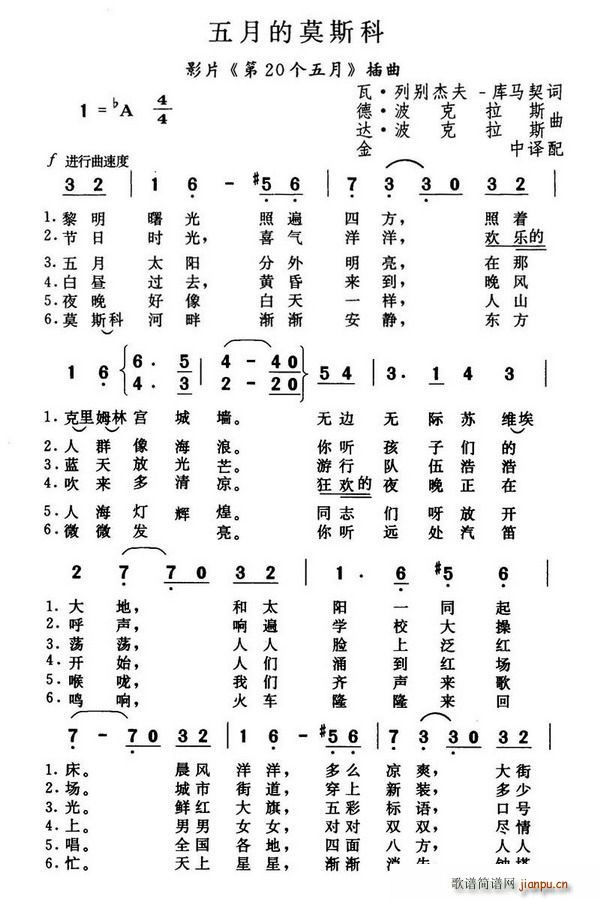 五月的莫斯科
影片《第20个五月》插曲
瓦·列别杰夫-库马契词
1=♭A 4/4
德·波克拉斯
达·波克拉斯曲
金 中译配
f 进行曲速度
3 2 | 1 6 - #5 6 | 7 3 3 0 3 2 |
1.黎明 曙光 照遍 四方, 照着
2.节日 时光, 喜气 洋洋, 欢乐的
3.五月 太阳 分外 明亮, 在那
4.白昼 过去, 黄昏 来到, 晚风
5.夜晚 好像 白天 一样, 人山
6.莫斯科 河畔 渐渐 安静, 东方
1 6 {6. 5 | 4 - 4 0} 5 4 | 3. 1 4 3 |
{4. 3 | 2 - 2 0}
1.克里姆林宫城墙。 无边无际苏维埃
2.人群像海浪。 你听孩子们的
3.蓝天放光芒。 游行队伍浩浩
4.吹来多清凉。 狂欢的夜晚正在
5.人海灯辉煌。 同志们呀放开
6.微微发亮。 你听远处汽笛
2 7 7 0 3 2 | 1. 6 #5 6 |
1.大地, 和太阳一同起
2.呼声, 响遍学校大操
3.荡荡, 人人脸上泛红
4.开始, 人们涌到红场
5.喉咙, 我们齐声来歌
6.鸣响, 火车隆隆来回
7 - 7 0 3 2 | 1 6 - #5 6 | 7 3 3 0 3 2 |
1.床。 晨风 洋洋, 多么 凉爽, 大街
2.场。 城市 街道, 穿上 新装, 多少
3.光。 鲜红 大旗, 五彩 标语, 口号
4.上。 男男 女女, 对对 双双, 尽情
5.唱。 全国 各地, 四面 八方, 人人
6.忙。 天上 星星, 渐渐 消失, 钟塔
歌谱简谱网
jianpu.cn